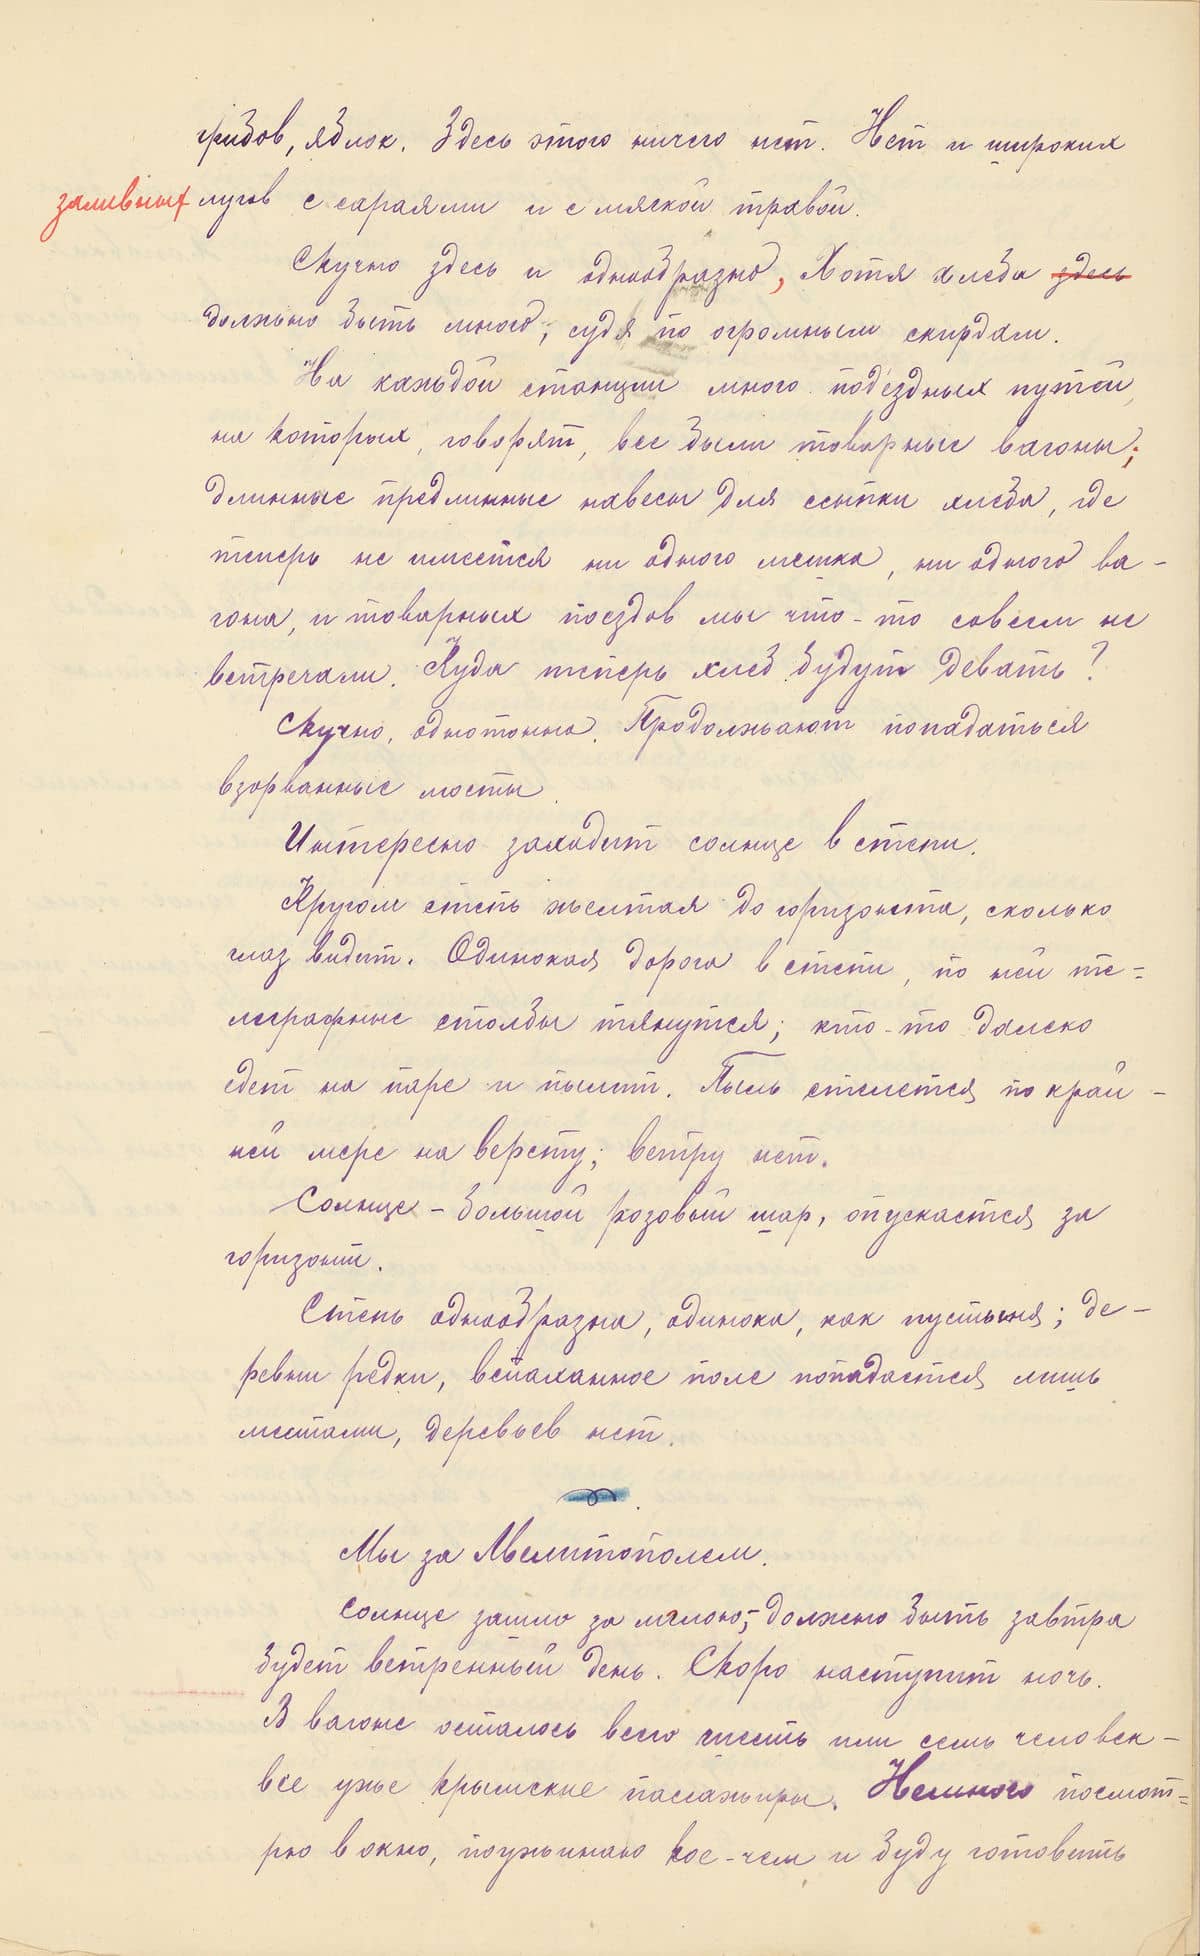 грибов, яблок. Здесь этого ничего нет. Нет и широких
заливных лугов с сараями и с мягкой травой.
Скучно здесь и однообразно, Хотя хлеба здесь
должно быть много, судя по огромным скирдам.
На каждой станции много подъездных путей,
на которых, говорят, все были товарные вагоны;
длинные предлинные навесы для ссыпки хлеба, где
теперь не имеется ни одного мешка, ни одного ва-
гона, и товарных поездов мы что-то совсем не
встречали. Куда теперь хлеб будут девать?
Скучно, однотонно. Продолжают попадаться
взорванные мосты.
Интересно заходит солнце в степи.
Кругом степь желтая до горизонта, сколько
глаз видит. Одинокая дорога в степи, по ней те-
леграфные столбы тянутся; кто-то далеко
едет на паре и пылит. Пыль стелется по край-
ней мере на версту; ветру нет.
Солнце - большой розовый шар, опускается за
горизонт.
Степь однообразна, одинока, как пустыня; де-
ревни редки, вспаханное поле попадается лишь
местами, деревьев нет.
Мы за Мелитополем.
Солнце зашло за мглою, - должно быть завтра
будет ветренный день. Скоро наступит ночь.
В вагоне осталось всего шесть или семь человек -
все уже крымские пассажиры. Немного посмот-
рю в окно, поужинаю кое-чем и буду готовить